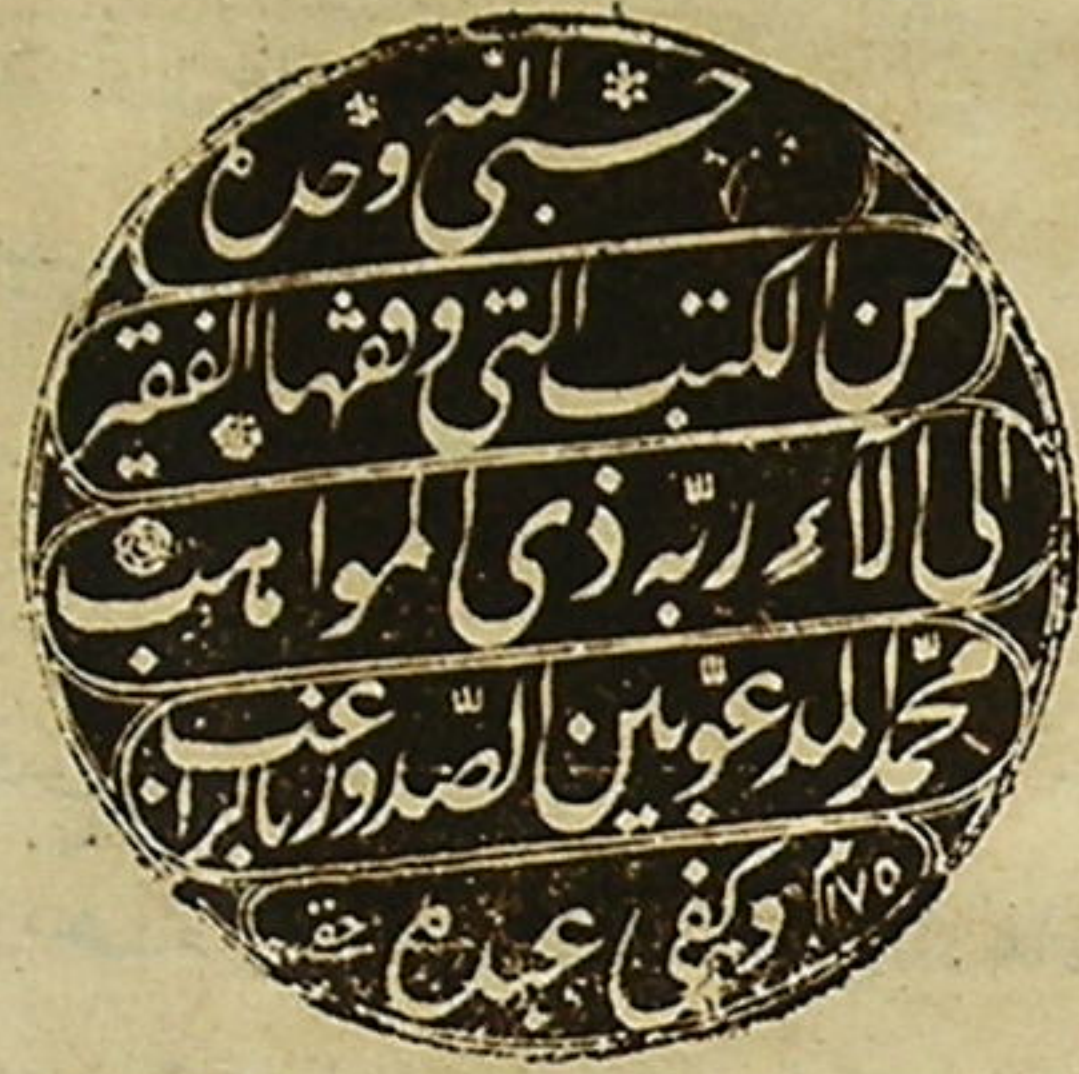 حسبي الله وحده
من الكتب التي وقفها الفقير
الى آلاء ربّه ذي المواهب
محمّد المدعوّ بين الصّدور بالراغب
ويكفي عبده